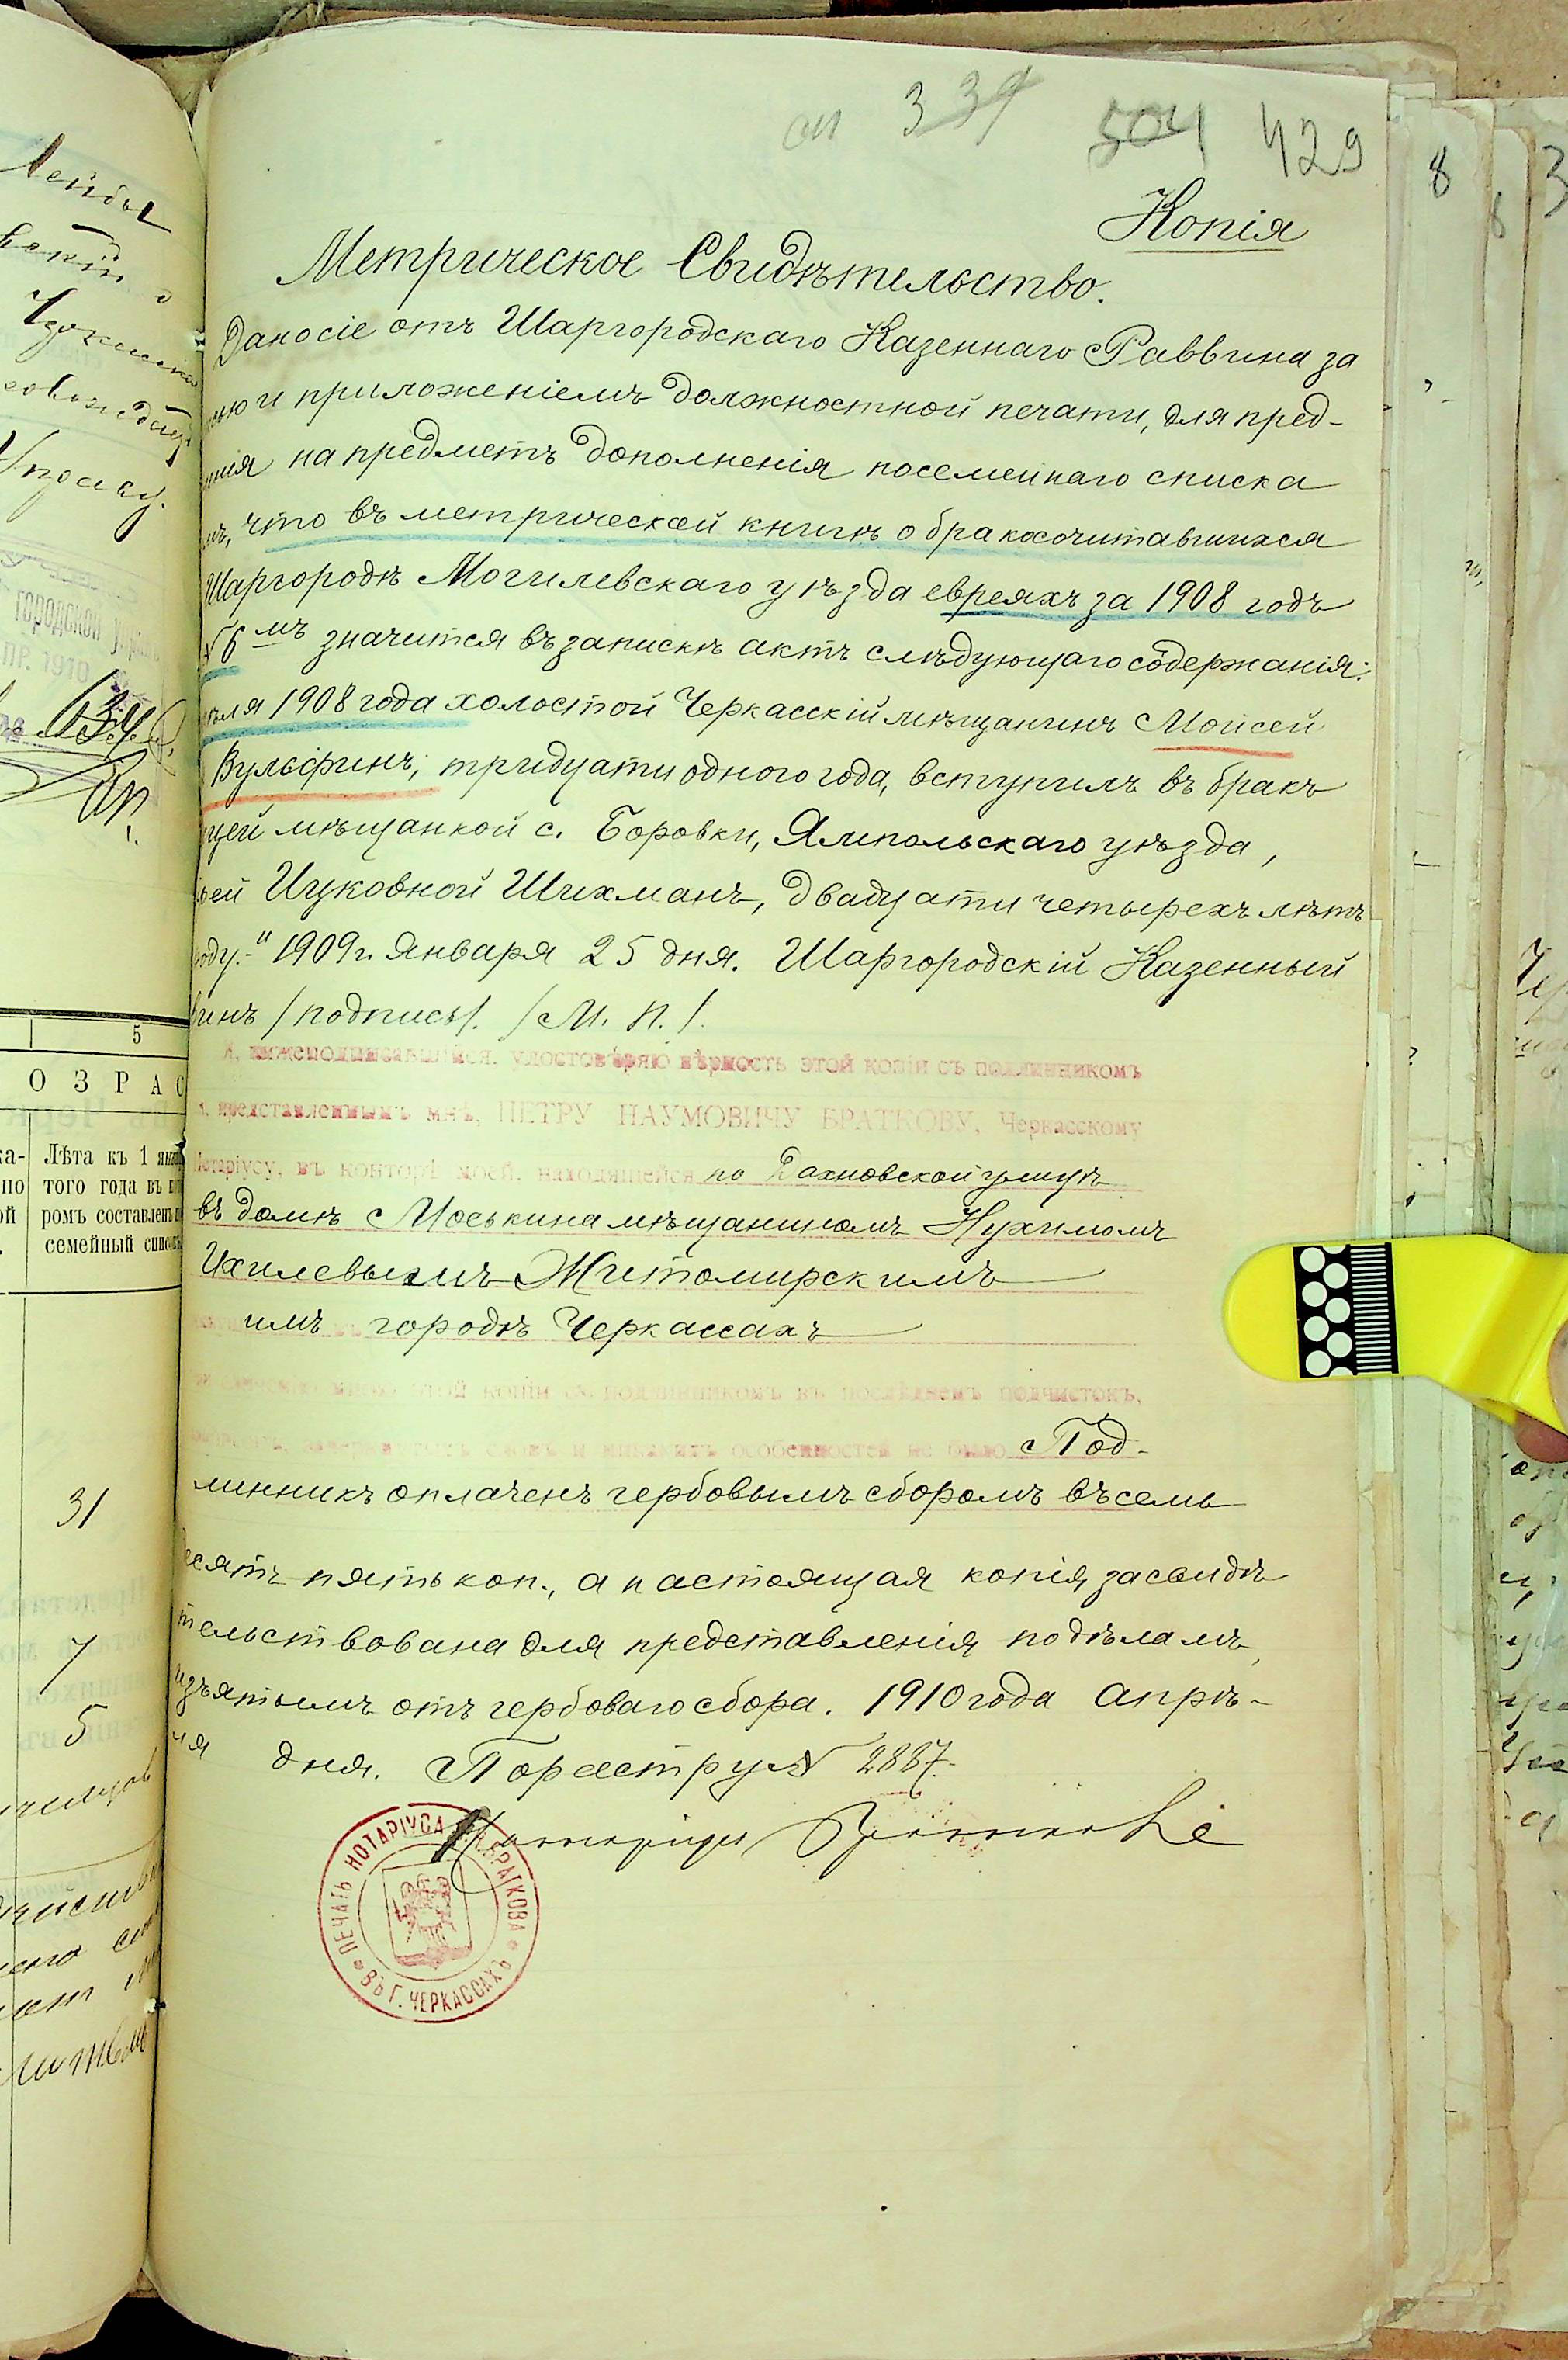 339 504 429
Копія
Метрическое Свидѣтельство.
Дано сіе отъ Шаргородскаго Казеннаго Раввина за
ью и приложеніемъ должностной печати, для пред-
нія на предметъ дополненія посемейнаго списка
мъ, что въ метрической книгѣ о бракосочитавшихся
Шаргородѣ Могилевскаго уѣзда евреяхъ за 1908 годъ
№ 6 мъ значится въ запискѣ актъ слѣдующаго содержанія:
ля 1908 года холостой Черкасскій мѣщанинъ Мойсей
Вульфинъ, тридцати одного года, вступилъ въ бракъ
цей мѣщанкой с. Боровки, Ямпольскаго уѣзда,
ьей Ицковной Шихманъ, двадцати четырехъ лѣтъ
оду.-" 1909 г. Января 25 дня. Шаргородскій Казенный
винъ /подпись/. /М. П./.
Я, нижеподписавшійся, удостовѣряю вѣрность этой копіи съ подлинникомъ
представленнымъ мнѣ, ПЕТРУ НАУМОВИЧУ БРАТКОВУ, Черкасскому
Нотаріусу, въ конторѣ моей, находящейся по Дахновской улицѣ
въ домѣ Моськина мѣщаниномъ Нухимомъ
Ихилевымъ Житомирскимъ
имъ городѣ Черкассахъ
мною этой копіи съ подлинникомъ въ послѣднемъ подчистокъ,
словъ и никакихъ особенностей не было Под-
линникъ оплаченъ гербовымъ сборомъ въ семь
десятъ пять коп., а настоящая копія засвидѣ
тельствована для представленія по дѣламъ,
изъятымъ отъ гербоваго сбора. 1910 года Апрѣ-
ля дня. По реестру № 2887.
Нотаріусъ Братковъ
ПЕЧАТЬ НОТАРІУСА П.Н. БРАТКОВА * ВЪ Г. ЧЕРКАССАХЪ *
5
ОЗРАС
Лѣта къ 1 янв
того года въ
ромъ составленъ
семейный списокъ
31
7
5
8
3